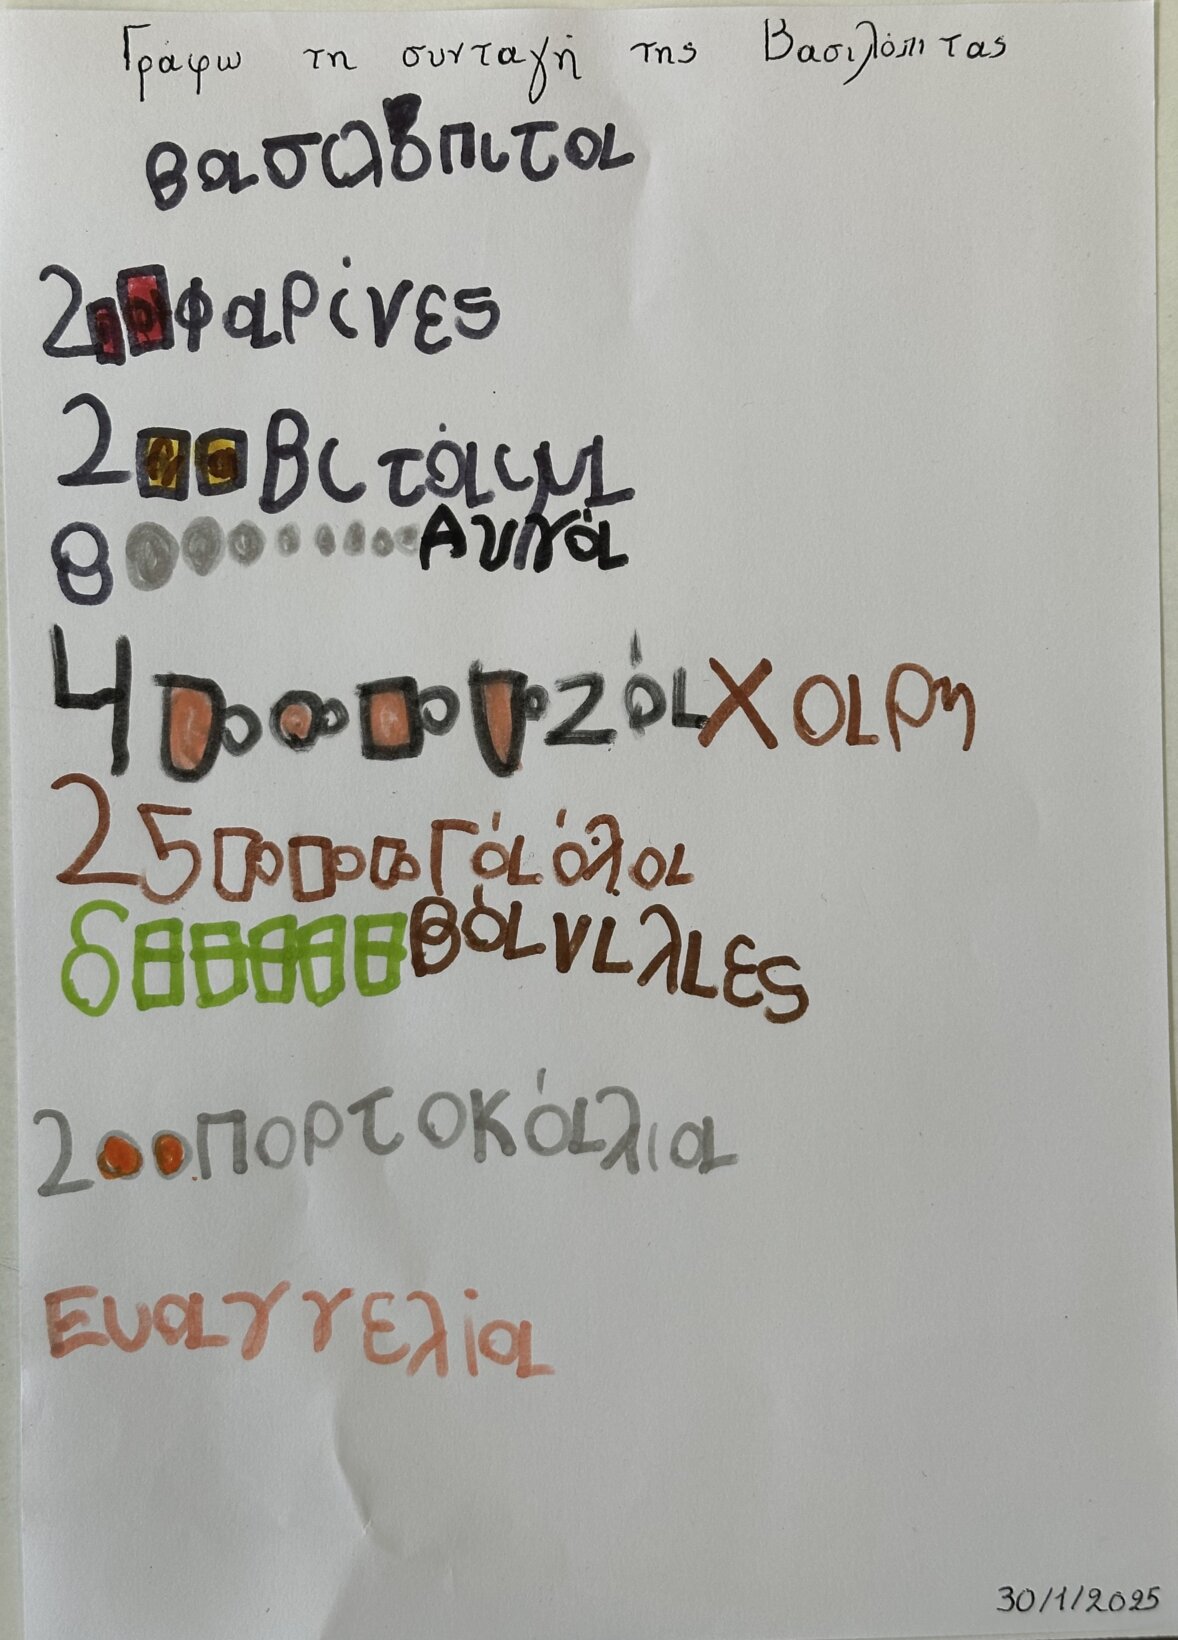 Γράφω τη συνταγή της Βασιλόπιτας
βασιλόπιτα
2 φαρίνες
2 Βιτάιμ
8 Αυγά
4 ζάχαρη
25 Γάάλα
6 βάνιλιες
2 πορτοκάλια
Ευαγγελία
30/1/2025